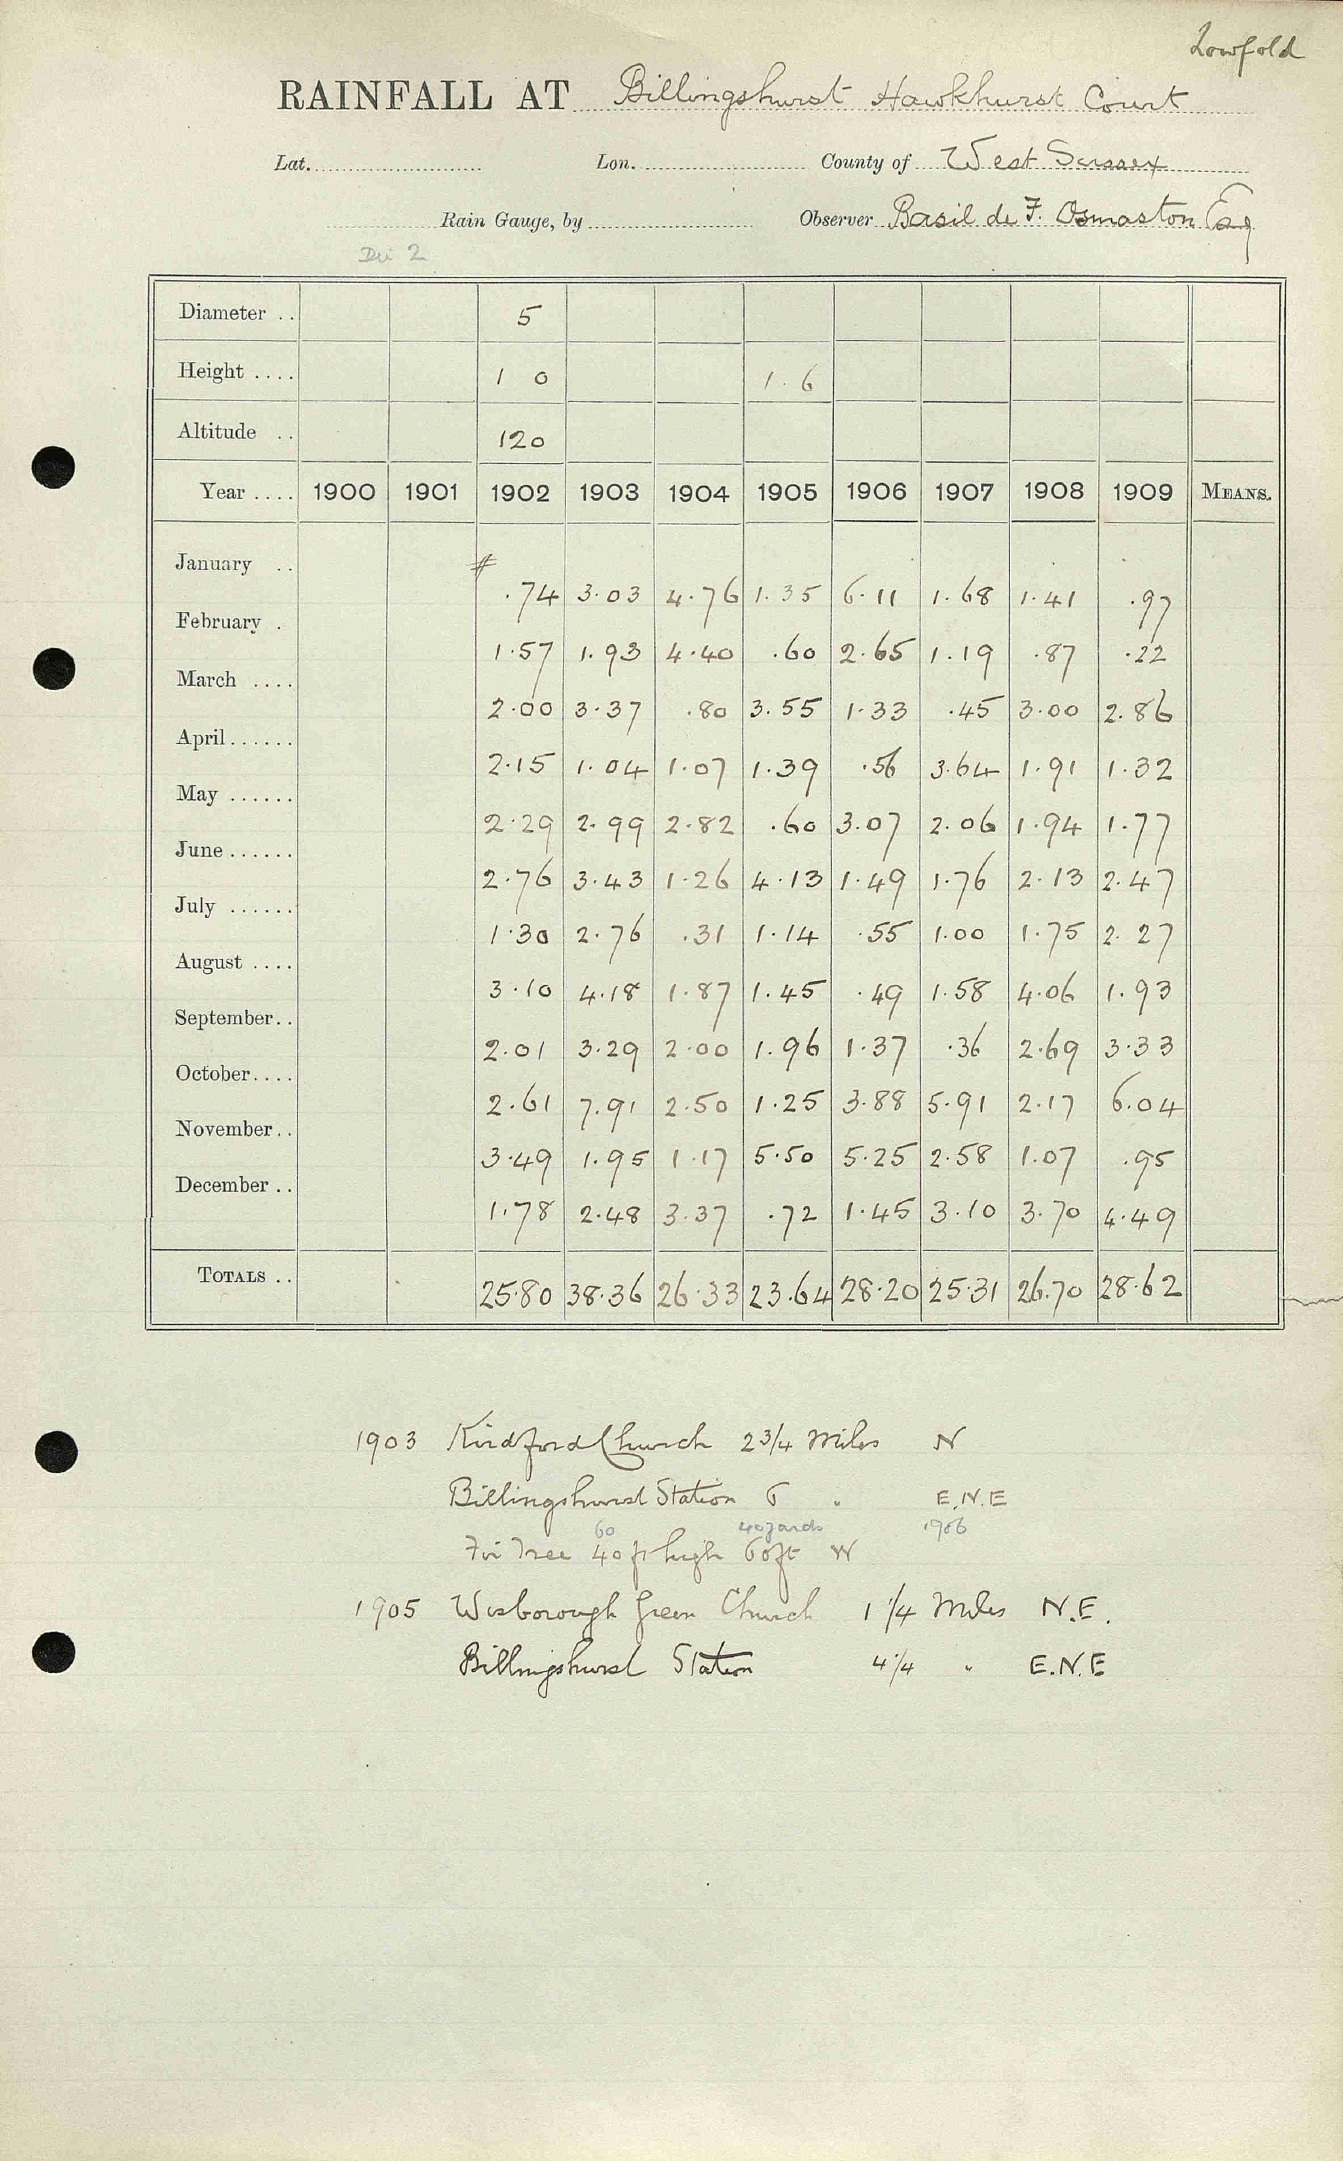 Lowfold
RAINFALL AT Billingshurst Hawkhurst Court
Lat. Lon. County of West Sussex
Rain Gauge, by Observer Basil de F. Osmaston Esq
2
Diameter .. 5
Height .... 1 0 1.6
Altitude .. 120
Year .... 1900 1901 1902 1903 1904 1905 1906 1907 1908 1909 MEANS.
January .. # .74 3.03 4.76 1.35 6.11 1.68 1.41 .97
February . 1.57 1.93 4.40 .60 2.65 1.19 .87 .22
March .... 2.00 3.37 .80 3.55 1.33 .45 3.00 2.86
April...... 2.15 1.04 1.07 1.39 .56 3.64 1.91 1.32
May ...... 2.29 2.99 2.82 .60 3.07 2.06 1.94 1.77
June...... 2.76 3.43 1.26 4.13 1.49 1.76 2.13 2.47
July ...... 1.30 2.76 .31 1.14 .55 1.00 1.75 2.27
August .... 3.10 4.18 1.87 1.45 .49 1.58 4.06 1.93
September.. 2.01 3.29 2.00 1.96 1.37 .36 2.69 3.33
October.... 2.61 7.91 2.50 1.25 3.88 5.91 2.17 6.04
November.. 3.49 1.95 1.17 5.50 5.25 2.58 1.07 .95
December .. 1.78 2.48 3.37 .72 1.45 3.10 3.70 4.49
TOTALS .. 25.80 38.36 26.33 23.64 28.20 25.31 26.70 28.62
1903 Kirdford Church 2 3/4 Miles N
Billingshurst Station 6 " E.N.E
60 40 yards 1906
Fir Tree 40 ft high 60ft W
1905 Wisborough Green Church 1 1/4 Miles N.E.
Billingshurst Station 4 1/4 " E.N.E